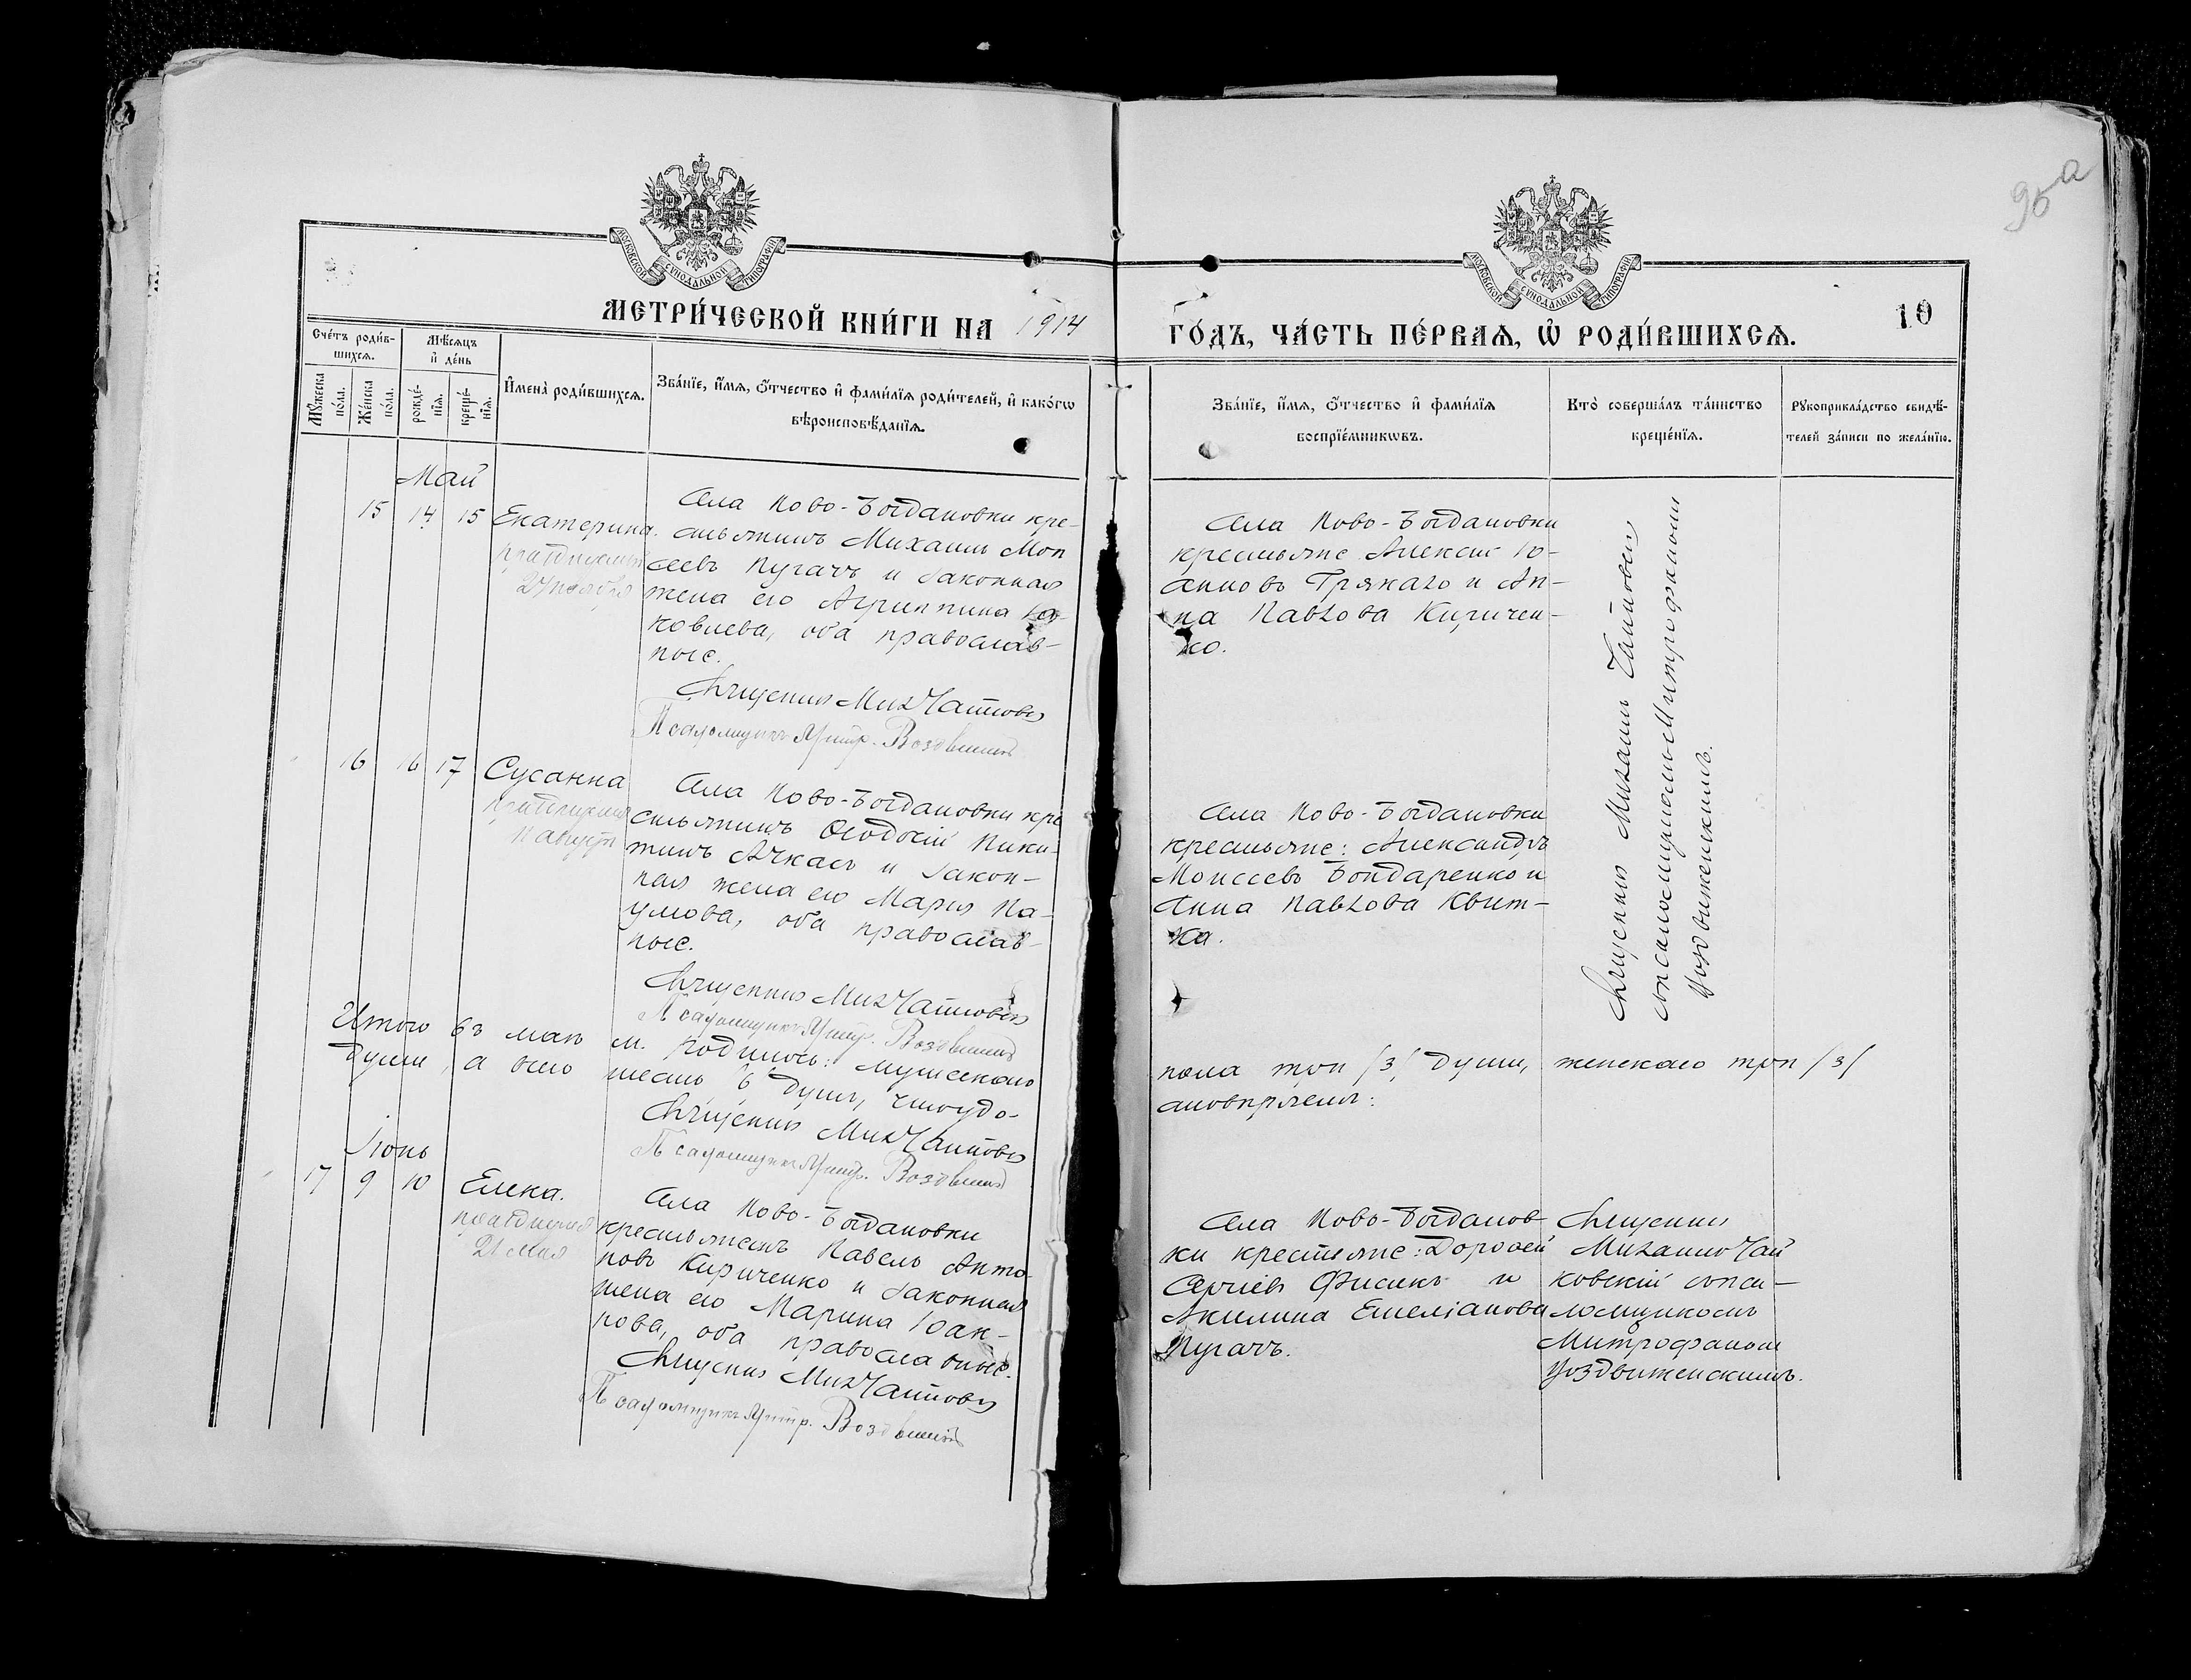 95а
МОСКОВСКОЙ СѴНОДАЛЬНОЙ ТИПОГРАФІИ
МОСКОВСКОЙ СѴНОДАЛЬНОЙ ТИПОГРАФІИ
МЕТРИ́ЧЕСКОЙ КНИ́ГИ НА 1914
ГО́ДЪ, ЧА́СТЬ ПЕ́РВАѦ, Ѽ РОДИ́ВШИХСѦ.
10
Сче́тъ роди́в-
шихсѧ.
Мꙋ́жеска
по́ла.
Же́нска
по́ла.
Мѣ́сѧцъ
и҆ де́нь
рожде́-
нїѧ.
креще́-
нїѧ.
И҆мена̀ роди́вшихсѧ.
Зва́нїе, и҆́мѧ, ѻ҆́тчество и҆ фами́лїѧ роди́телей, и҆ како́гѡ
вѣроисповѣ́данїѧ.
Зва́нїе, и҆́мѧ, ѻ҆́тчество и҆ фами́лїѧ
воспрїе́мникѡвъ.
Кто̀ соверша́лъ та́инство
креще́нїѧ.
Рꙋкоприкла́дство свидѣ́-
телей за́писи по жела́нїю.
Май
15 14 15 Екатерина.
24 ноября
Села Ново-Богдановки кре-
стьянинъ Михаилъ Мои
сеевъ Пугачъ и законная
жена его Агриппина Іа-
ковлева, оба православ-
ные.
Священникъ Мих Чайковскій
Псаломщикъ Митр. Воздвиженс
Села Ново-Богдановки
крестьяне Алексій Іо-
анновъ Трякало и Ан-
на Павлова Киричен-
ко.
Священникъ Михаилъ Чайковскій
съ псаломщикомъ Митрофаномъ
Уоздвиженскимъ.
16 16 17 Сусанна
11 августа
Села Ново-Богдановки кре
стьянинъ Ѳеодосій Ники-
тинъ Ачкасъ и закон-
ная жена его Марія На-
умова, оба православ-
ные.
Священникъ Мих Чайковскій
Псаломщикъ Митр. Воздвиженс
Села Ново-Богдановки
крестьяне: Александръ
Моисеевъ Бондаренко и
Анна Павлова Квит-
ка.
Итого въ маѣ м. родилось: мужескаго
пола три /3/ души, женскаго три /3/
души, а всего шесть /6/ душъ, что удо-
стовѣряемъ:
Священникъ Мих Чайковскій
Псаломщикъ Митр. Воздвиженс
Іюнь
17 9 10 Елена.
21 мая
Села Ново-Богдановки
крестьянинъ Павелъ Анто-
новъ Кириченко и законная
жена его Марина Іоан-
нова, оба православные.
Священникъ Мих Чайковскій
Псаломщикъ Митр. Воздвиженскій
Села Ново-Богданов-
ки крестьяне: Дороѳей
Сергіевъ Фисикъ и
Акилина Емеліанова
Пугачъ.
Священникъ
Михаилъ Чай
ковскій съ пса-
ломщикомъ
Митрофаномъ
Уоздвиженскимъ.